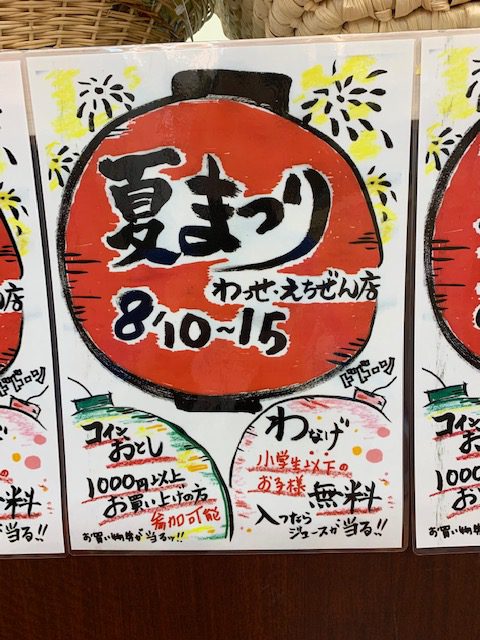 夏まつり
わっせ・えちぜん店
8/10~15
ドドーン
コイン
おとし
1000円以上
お買い上げの方
参加可能
お買い物券が当るッ!!
ドドーン
わなげ
小学生以下の
お子様 無料
入ったら
ジュースが当る!!
料
が当る!!
コイン
お
1000
お買い
お買い物